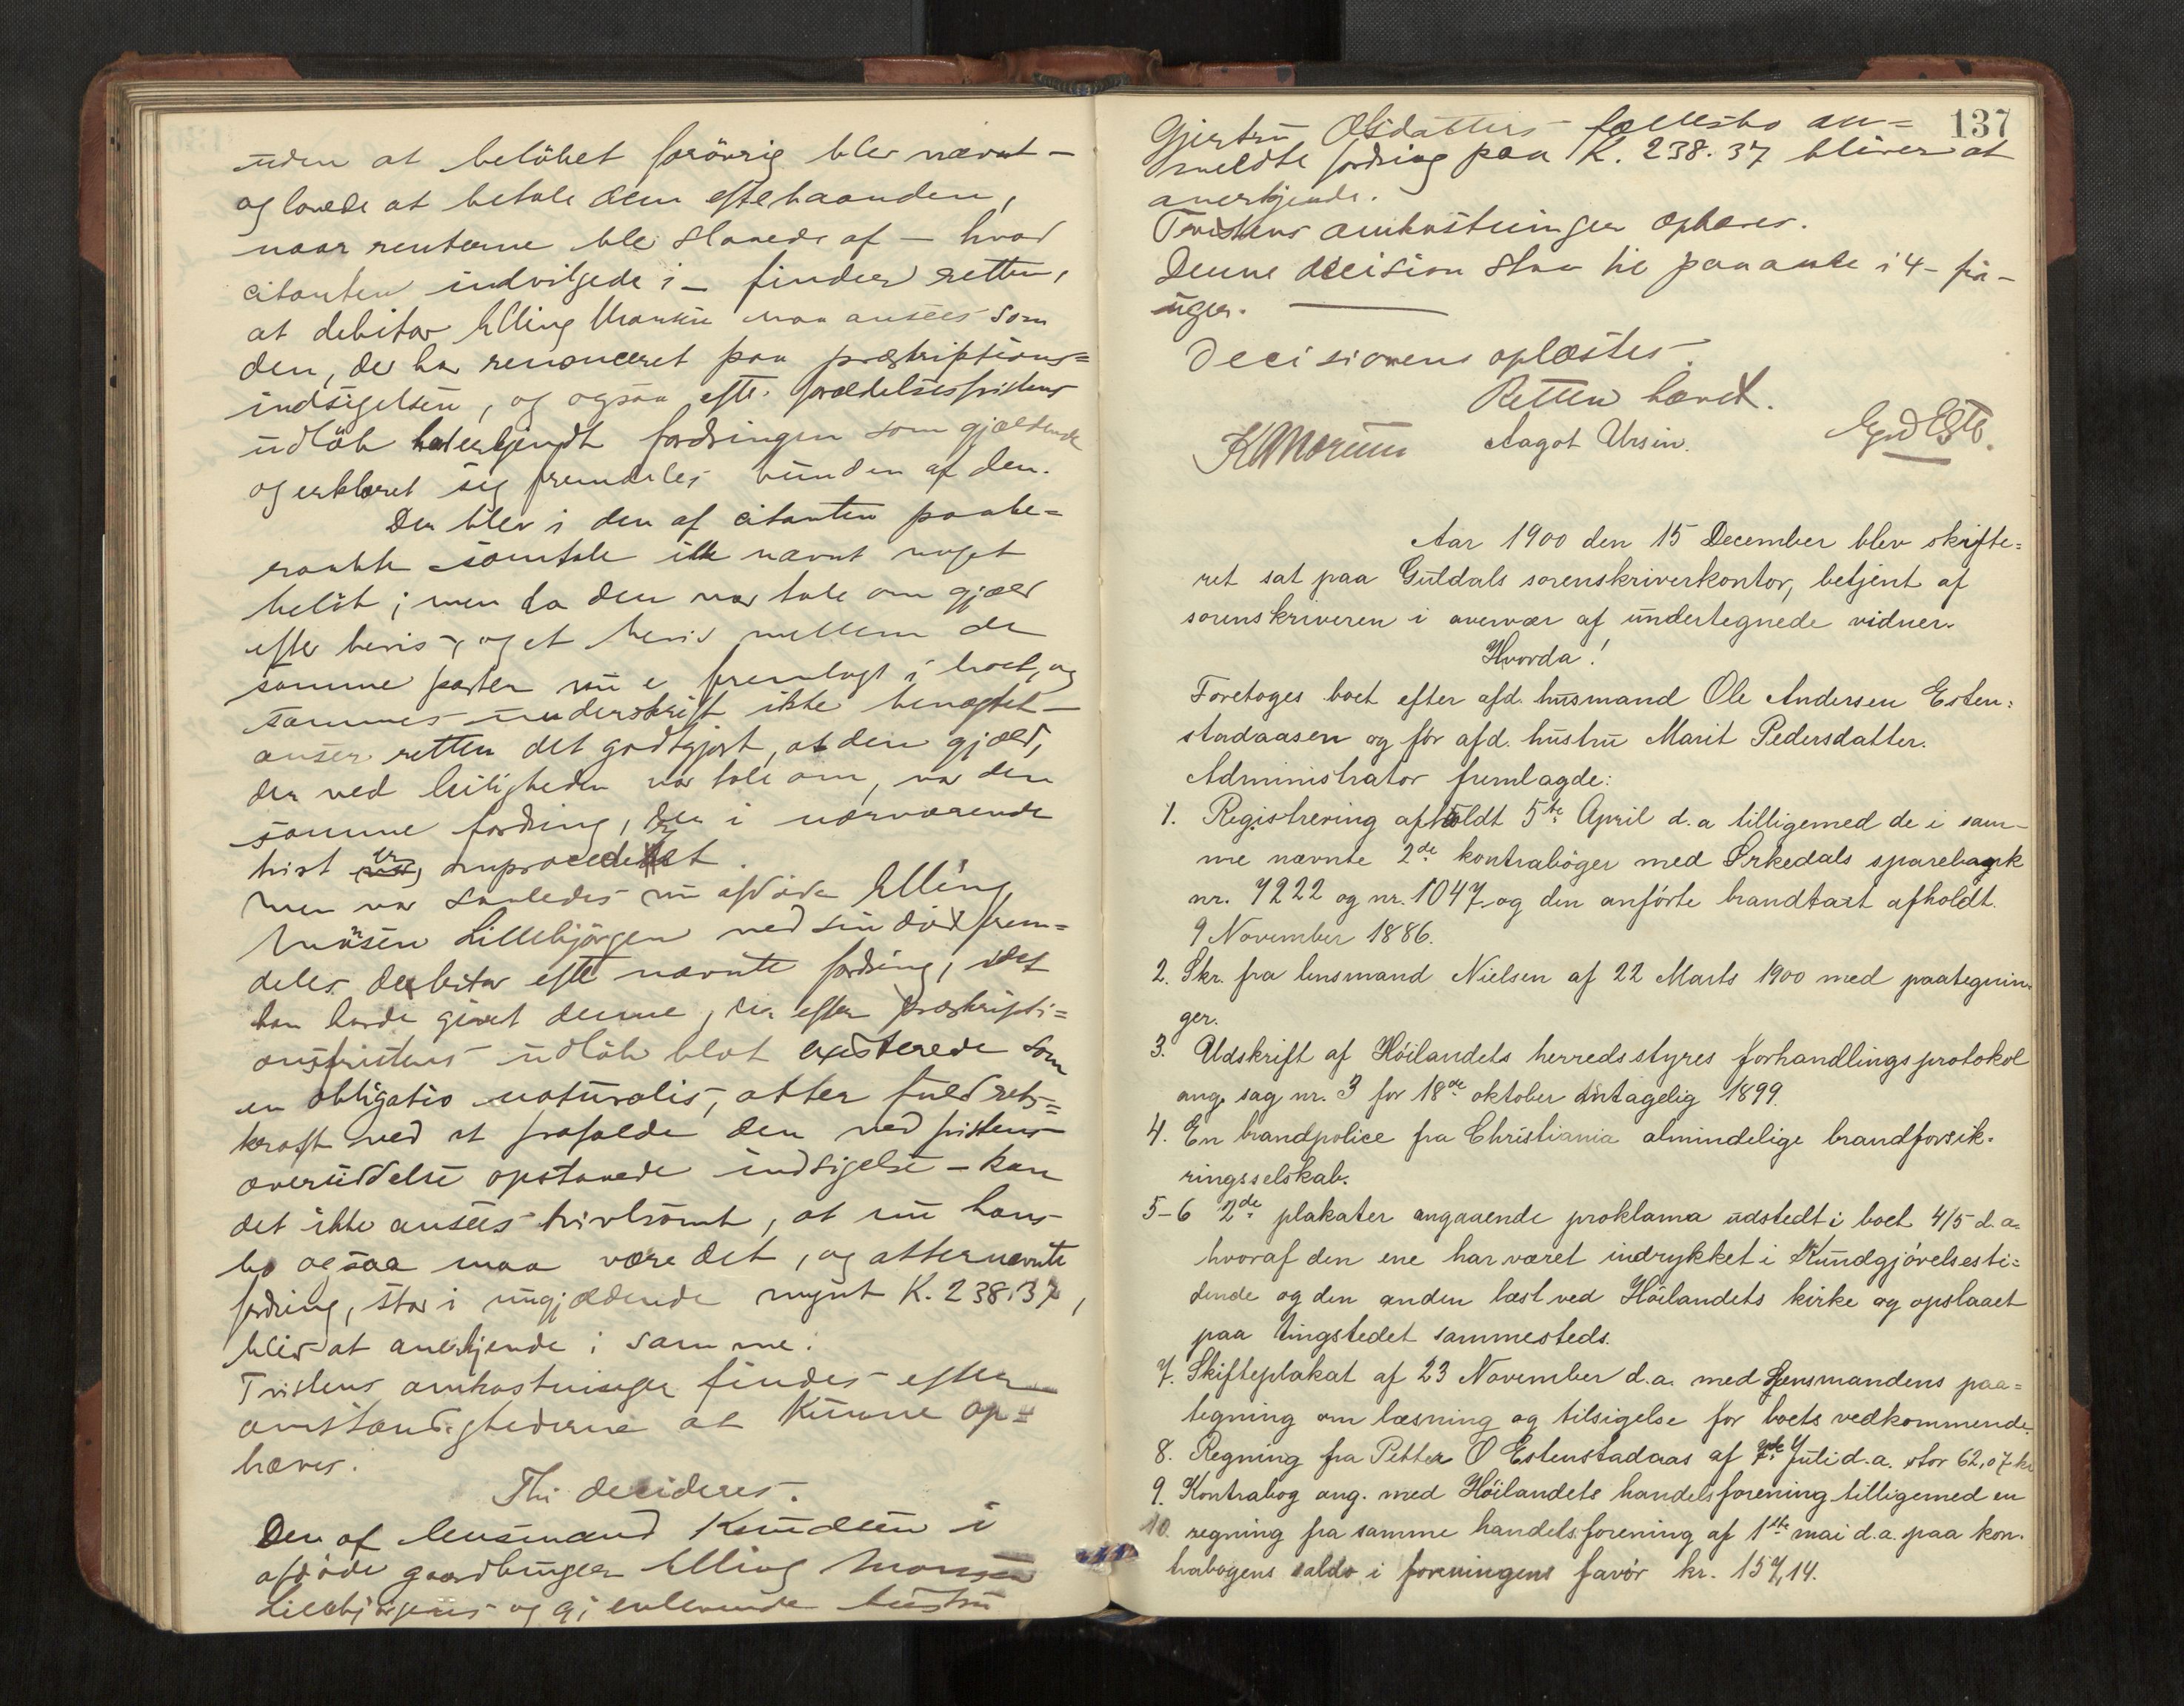 uden at belöbet forövrig blev nævnt -
og lovede at betale dem efterhaanden,
naar renterne blev slaaede af - hvad
citanten indvilgede i - finder retten,
at debitor Elling Monsen maa ansees som
den, der har renonceret paa præskriptions=
indsigelsen, og ogsaa efter forældelsesfristens
udlöb har erkjendt fordringen som gjældende
og erklæret sig fremdeles bunden af den.
Der blev i den af citanten paabe=
raabte samtale ikke nævnt noget
belöb; men da der var tale om gjæld
efter bevis, og et bevis mellem de
samme parter nu er fremlagt i boet, og
sammes underskrift ikke benægtet -
anser retten det godtgjort, at den gjæld,
der ved leiligheden var tale om, var den
samme fordring, der i nærværende
tvist er omprocederet.
Men var saaledes nu afdöde Elling
Monsen Lillebjörgen ved sin död frem=
deles debitor efter nævnte fordring, idet
han havde givet denne, der efter præskripti=
onsfristens udlöb blot existerede som
en obligatio naturalis, atter fuld rets=
kraft ved at frafalde den ved fristens
oversiddelse opstaaede indsigelse - kan
det ikke ansees tvivlsomt, at nu hans
bo ogsaa maa være det, og at ternævnte
fordring, stor i nugjældende mynt K. 238.37,
bliver at anerkjende i samme.
Tvistens omkostninger findes efter
omstændighederne at kunne op=
hæves.
Thi decideres:
Den af lensmand Knudsen i
afdöde gaardbruger Elling Monsen
Lillebjörgens og gjenlevende hustru
137
Gjertru Olsdatters fællesbo an=
meldte fordring paa K. 238.37 bliver at
anerkjende.
Tvistens omkostninger ophæves.
Denne decision staar til paaanke i 4 - fire -
uger.
Decisionen oplæstes.
Retten hævet.
Aagot Ursin.
Aar 1900 den 15 December blev skifte=
ret sat paa Guldals sorenskriverkontor, betjent af
sorenskriveren i overvær af undertegnede vidner.
Hvorda!
Foretoges boet efter afd. husmand Ole Andersen Esten=
stadaasen og för afd. hustru Marit Pedersdatter.
Administrator fremlagde:
1. Registrering afholdt 5te April d.a. tilligemed de i sam-
me nævnte 2de kontraböger med Örkedals sparebank
nr. 7222 og nr. 1047 og den anförte brandtaxt afholdt
9 November 1886.
2. Skr. fra lensmand Nielsen af 22 Marts 1900 med paategnin-
ger.
3. Udskrift af Höilandets herredsstyres forhandlingsprotokol
ang. sag nr. 3 for 18de oktober antagelig 1899.
4. En brandpolice fra Christiania almindelige brandforsik-
ringsselskab.
5-6 2de plakater angaaende proklama udstedt i boet 4/5 d.a.
hvoraf den ene har været indrykket i Kundgjörelsesti=
dende og den anden læst ved Höilandets kirke og opslaaet
paa tingstedet sammesteds.
7. Skifteplakat af 23 November d.a. med Lensmandens paa=
tegning om læsning og tilsigelse for boets vedkommende.
8. Regning fra Petter O Estenstadaas af 2de Juli d.a. stor 62,07 kr
9. Kontrabog ang. med Höilandets handelsforening tilligemed en
10. regning fra samme handelsforening af 1ste mai d.a. paa kon-
trabogens saldo i foreningens favör kr. 157,14.